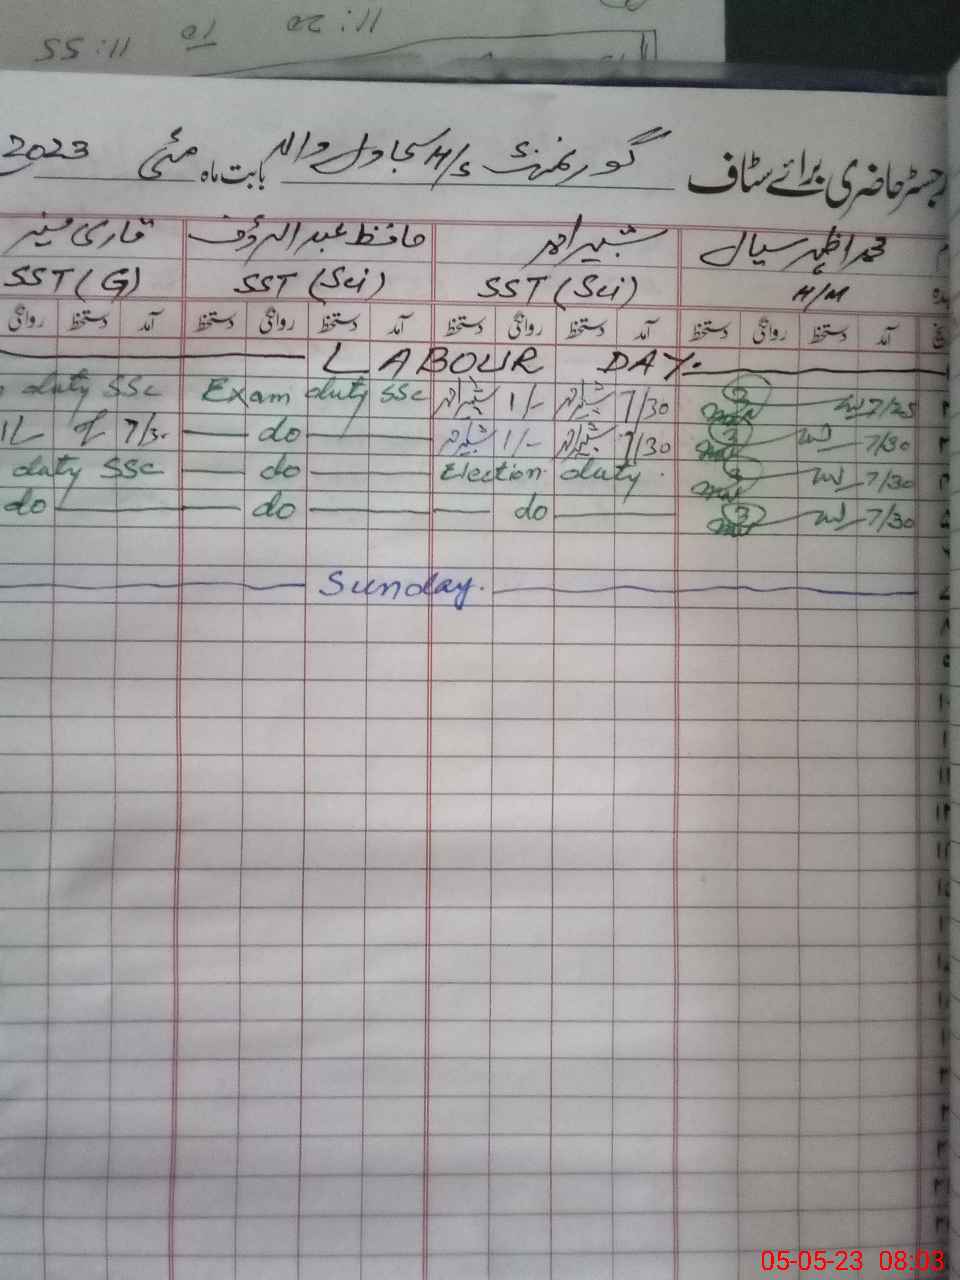 11:20 To 11:55
رجسٹر حاضری برائے سٹاف گورنمنٹ H/S سجاول والہ بابت ماہ مئی 2023
محمد اظہر سیال شبیر احمد حافظ عبدالرؤف قاری منیر
H/M SST (Sci) SST (Sci) SST (G)
آمد دستخط روانگی دستخط آمد دستخط روانگی دستخط آمد دستخط روانگی دستخط آمد دستخط روانگی
LABOUR DAY.
۲ 7/25 7/30 شبیر احمد 1/- شبیر احمد Exam duty SSc duty SSc
۳ 7/30 7/30 شبیر احمد 1/- شبیر احمد do 7/30
۴ 7/30 Election duty. do duty SSc
۵ 7/30 do do do
۶
۷ Sunday.
۸
۹
05-05-23 08:03